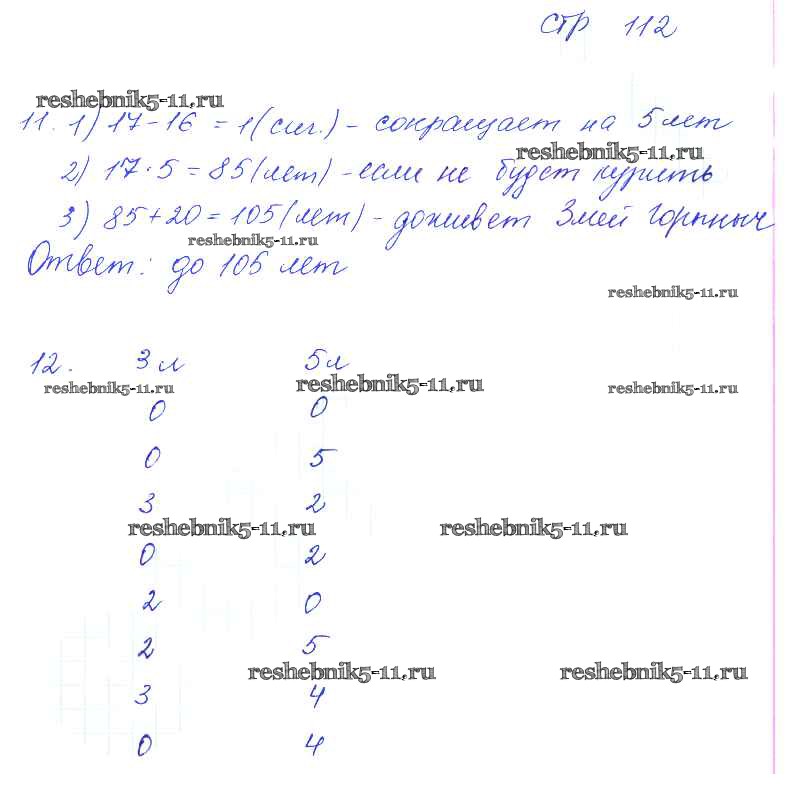 стр 112
reshebnik5-11.ru
11. 1) 17-16 = 1(сиг.) - сокращает на 5 лет
reshebnik5-11.ru
2) 17·5 = 85(лет) - если не будет курить
3) 85+20 = 105(лет) - доживет Змей Горыныч
reshebnik5-11.ru
Ответ: до 105 лет
reshebnik5-11.ru
12. 3л 5л
reshebnik5-11.ru reshebnik5-11.ru reshebnik5-11.ru
0 0
0 5
3 2
reshebnik5-11.ru reshebnik5-11.ru
0 2
2 0
2 5
reshebnik5-11.ru reshebnik5-11.ru
3 4
0 4